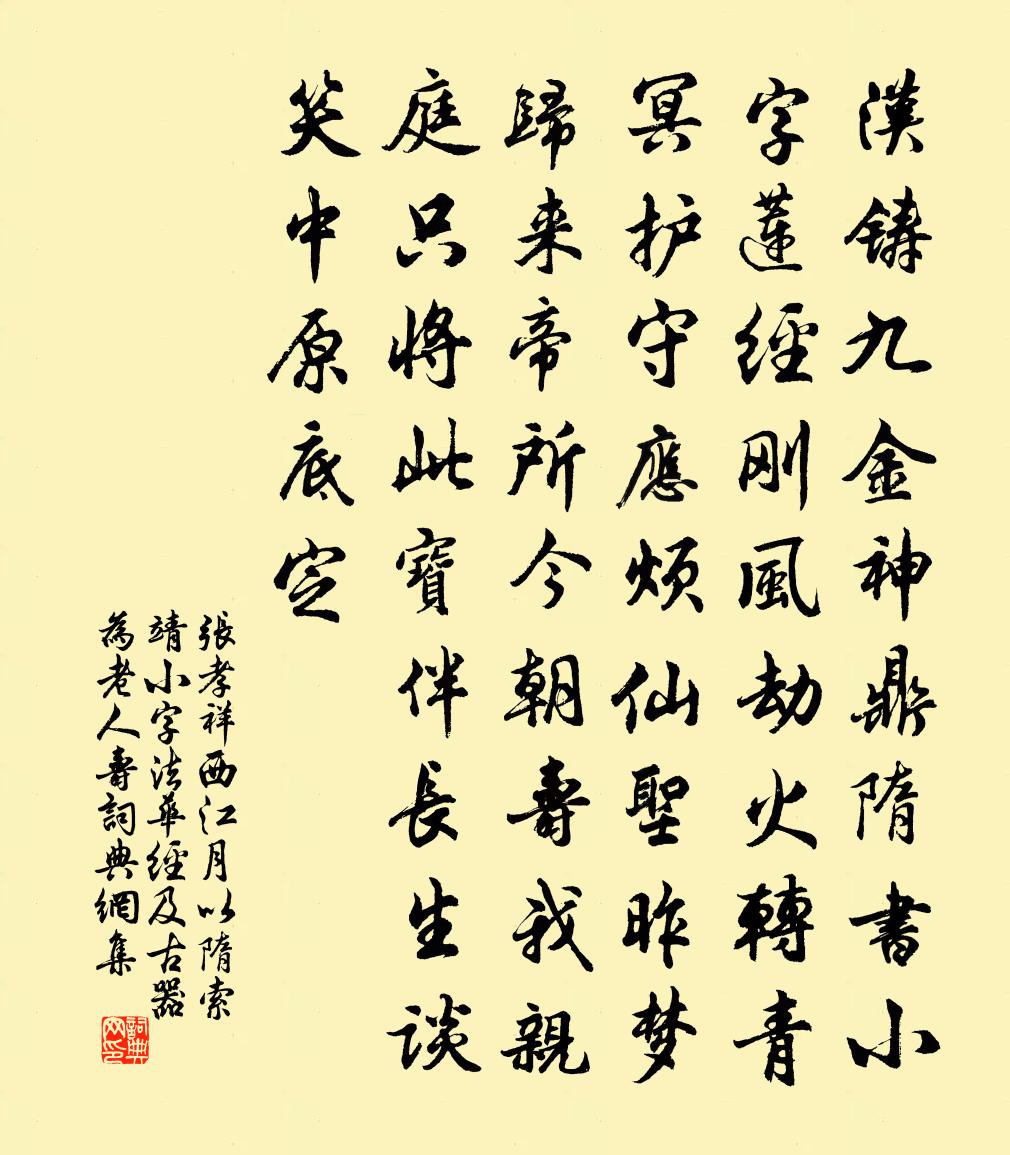 漢鑄九金神鼎隋書小
字蓮經刚風劫火轉青
冥护守應烦仙聖昨梦
歸来帝所今朝壽我親
庭只將此寶伴長生谈
笑中原底定
張孝祥西江月以隋索
靖小字法華經及古器
為老人壽詞典網集
詞典
网印